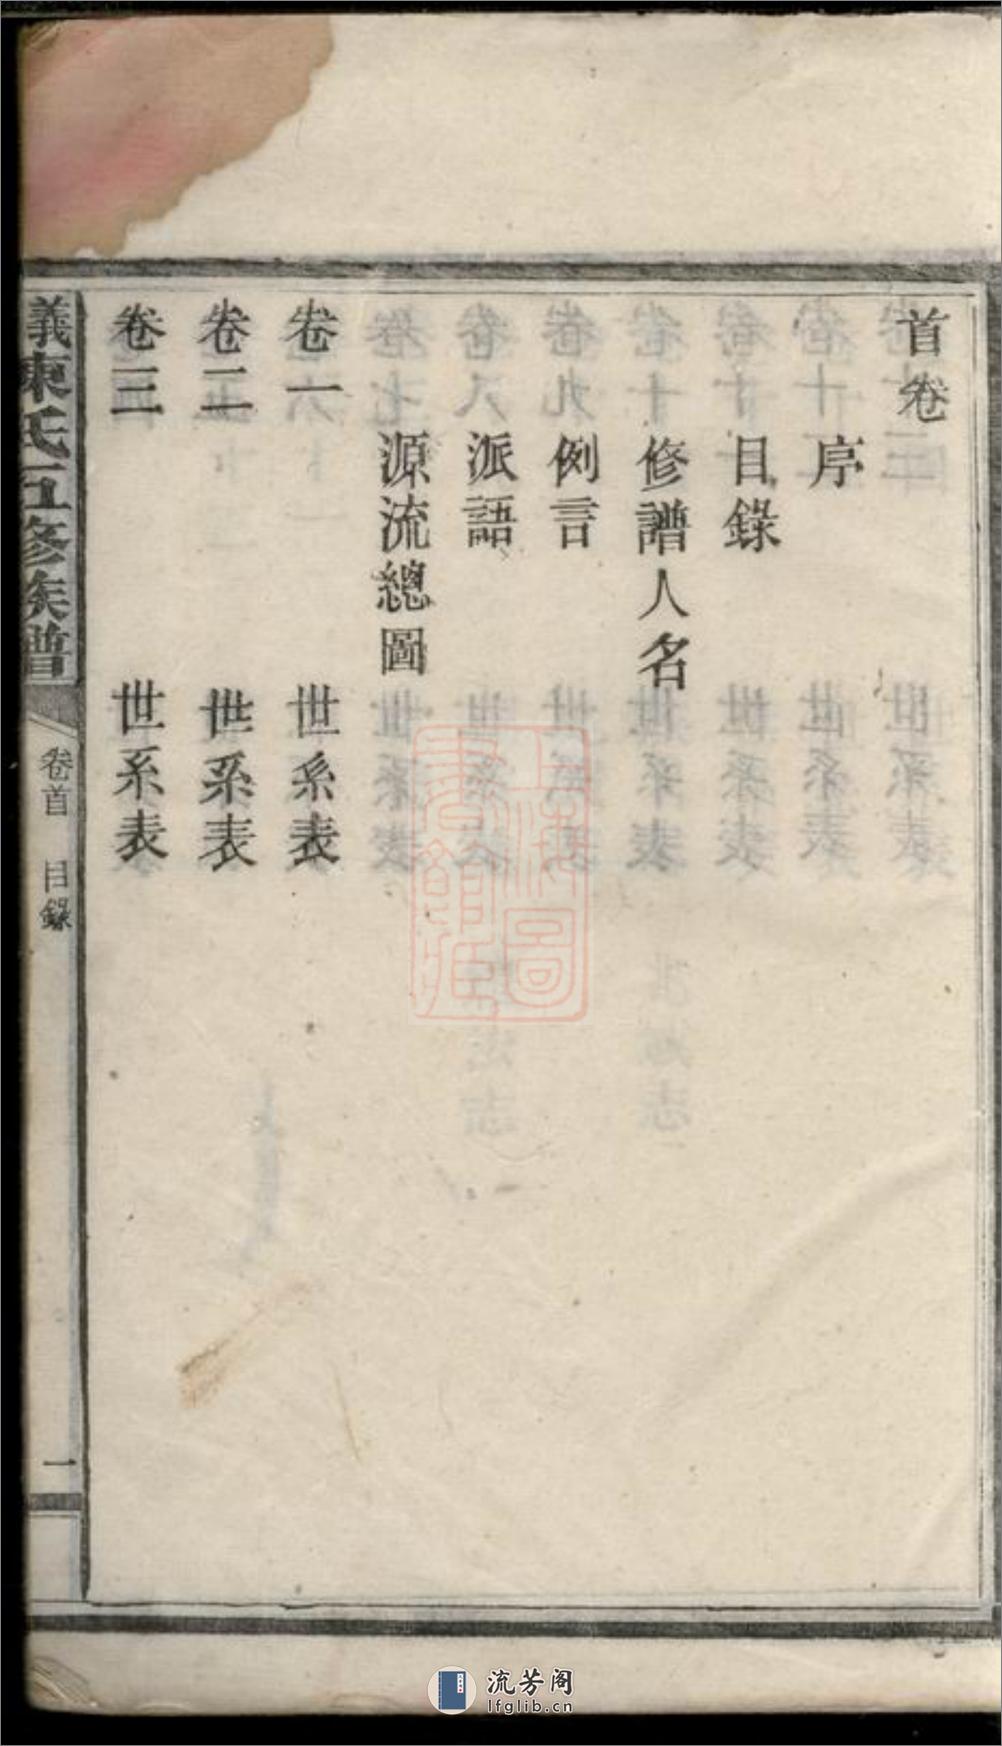 首卷
序
目錄
修譜人名
例言
派語
源流總圖
卷一 世系表
卷二 世系表
卷三 世系表
義陳氏五修族譜
卷首 目錄
一
流芳阁
lfglib.cn